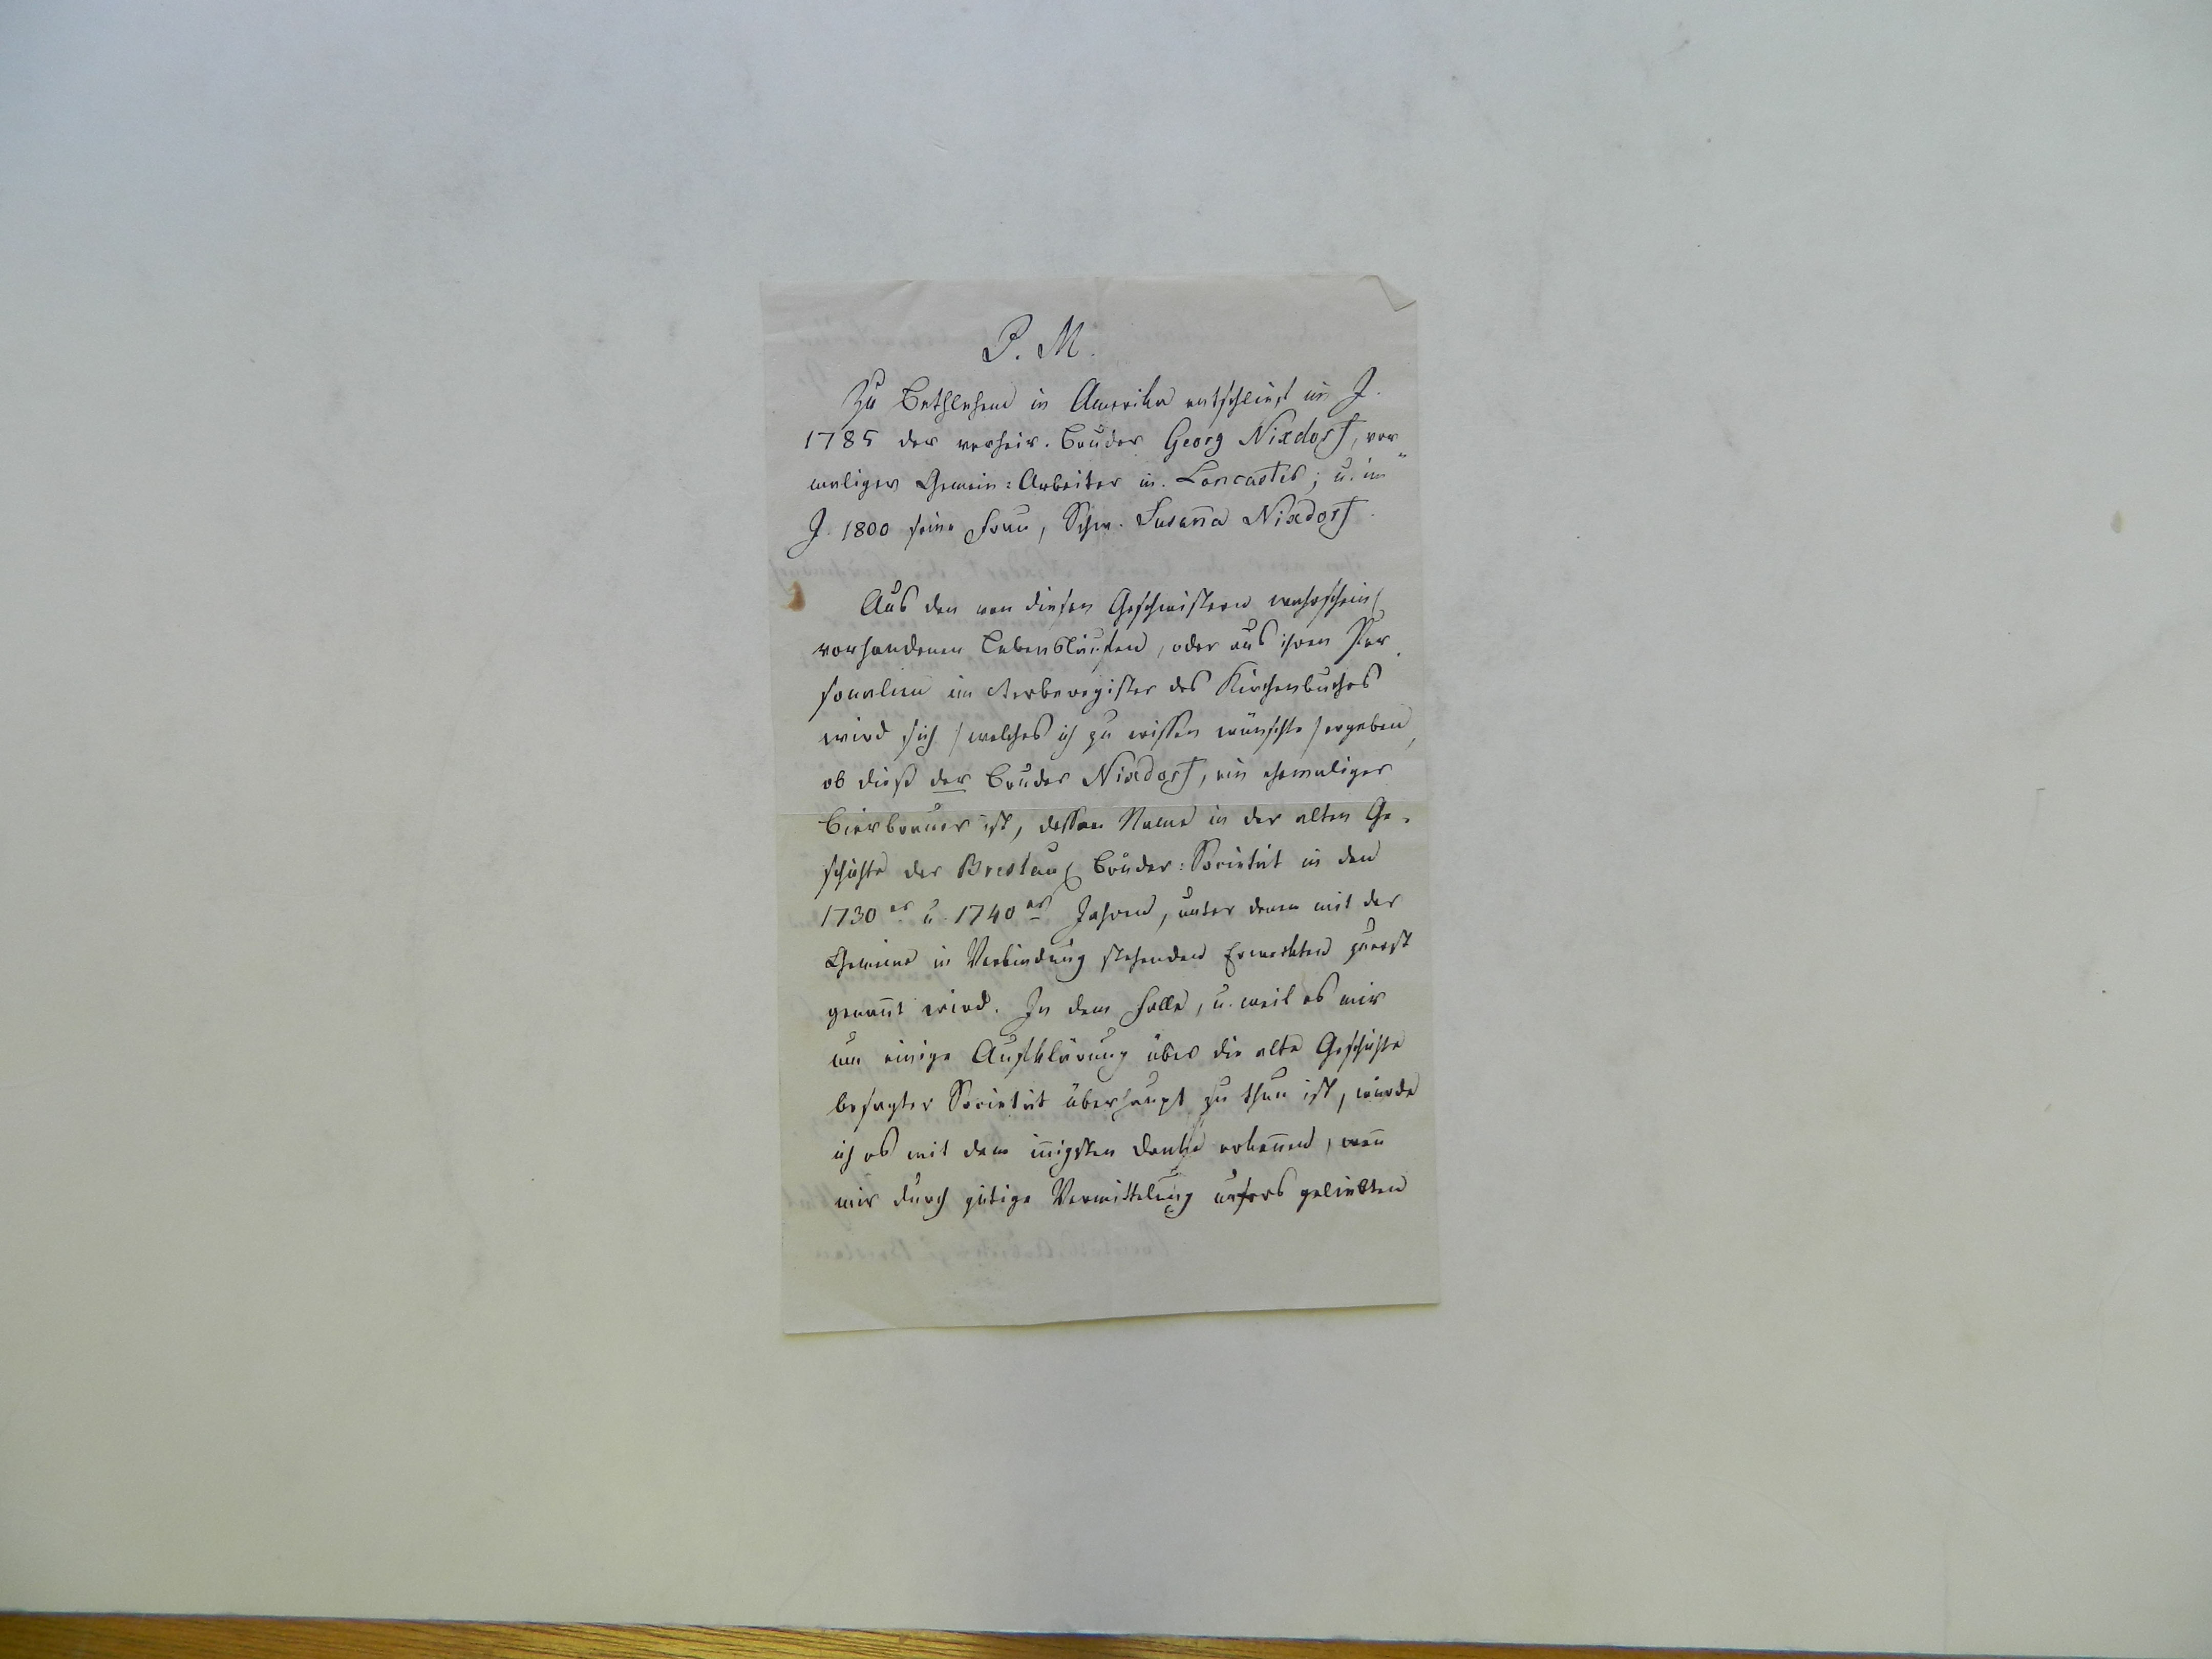 P. M.
Zu Bethlehem in Amerika entschlief im J.
1785 der verheir. Bruder Georg Nixdorf, vor
maliger Gemein=Arbeiter in Lancaster; u. im
J. 1800 seine Frau, Schw. Susan̄a Nixdorf.
Aus den von diesen Geschwistern wahrschein
vorhandenen Lebensläufen, oder aus ihren Per
sonalien im Sterberegister des Kirchenbuches
wird sich /welches ich zu wissen wünschte/ ergeben,
ob dieß der Bruder Nixdorf, ein ehemaliger
Bierbrauer ist, dessen Name in der alten Ge-
schichte der Breslau Brüder=Societät in den
1730er u. 1740er Jahren, unter denen mit der
Gemeine in Verbindung stehenden Erweckten zuerst
genan̄t wird. In dem Falle, u. weil es mir
um einige Aufklärung über die alte Geschichte
besagter Societät überhaupt zu thun ist, würde
ich es mit dem in̄igsten Danke erken̄en, wen̄
mir durch gütige Vermittelung unsers geliebten